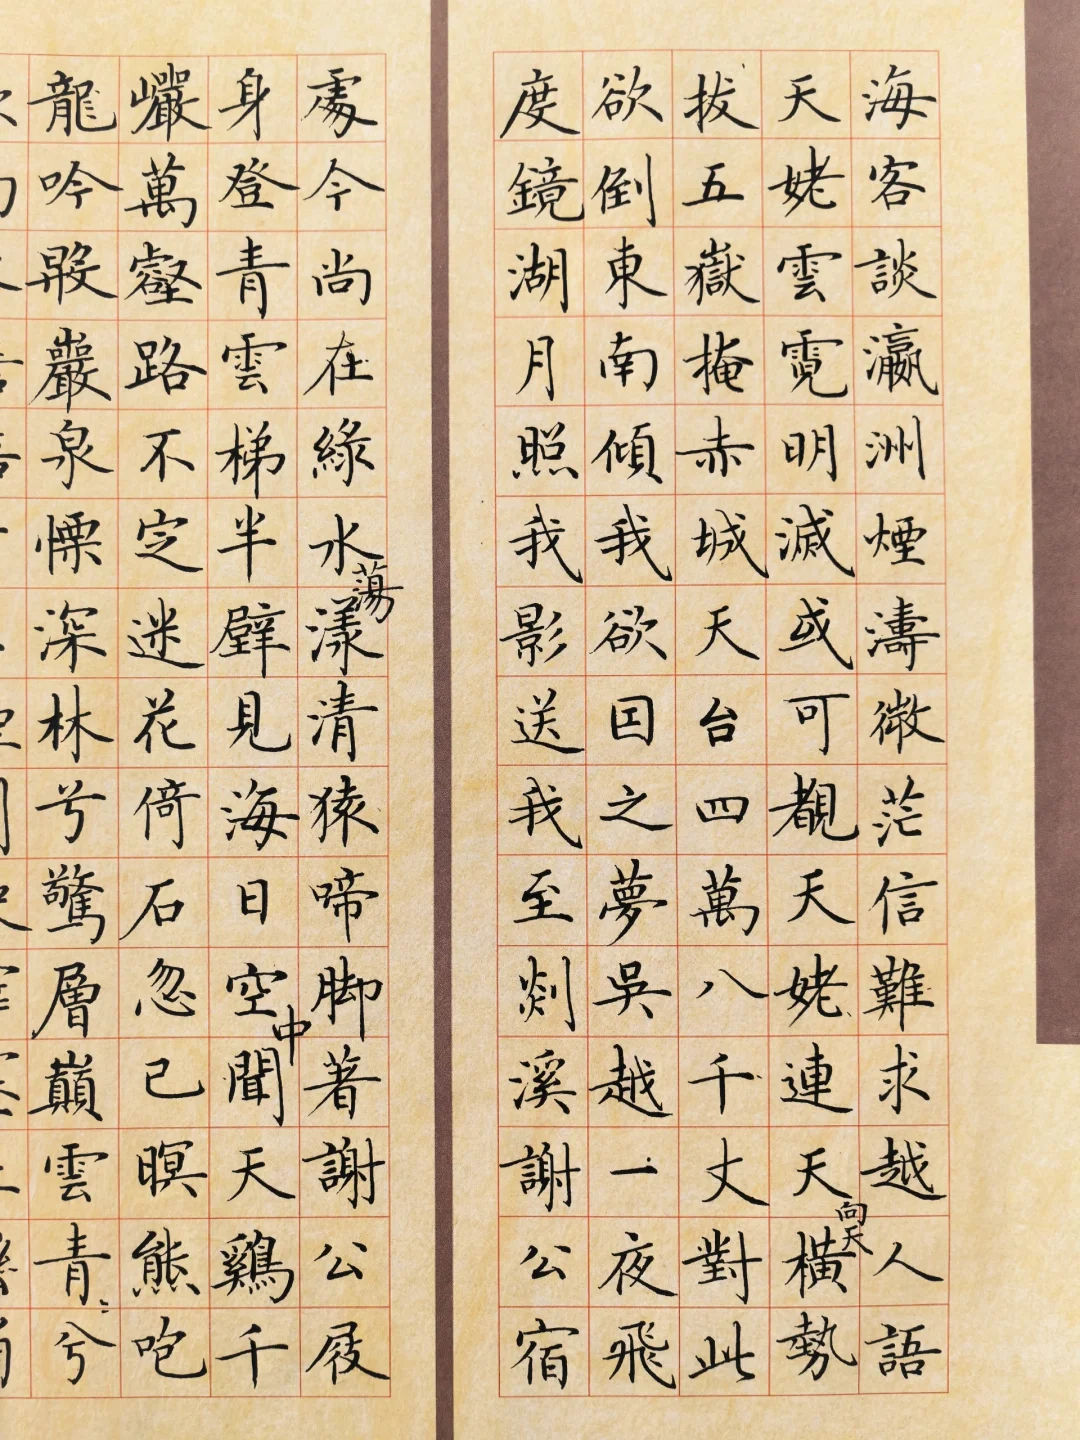 海客談瀛洲煙濤微茫信難求越人語
天姥雲霓明滅或可覩天姥連天向天橫勢
拔五嶽掩赤城天台四萬八千丈對此
欲倒東南傾我欲因之夢吳越一夜飛
度鏡湖月照我影送我至剡溪謝公宿
處今尚在綠水蕩漾清猿啼脚著謝公屐
身登青雲梯半壁見海日空中聞天鷄千
巖萬壑路不定迷花倚石忽已暝熊咆
龍吟殷巖泉慄深林兮驚層巔雲青〻兮